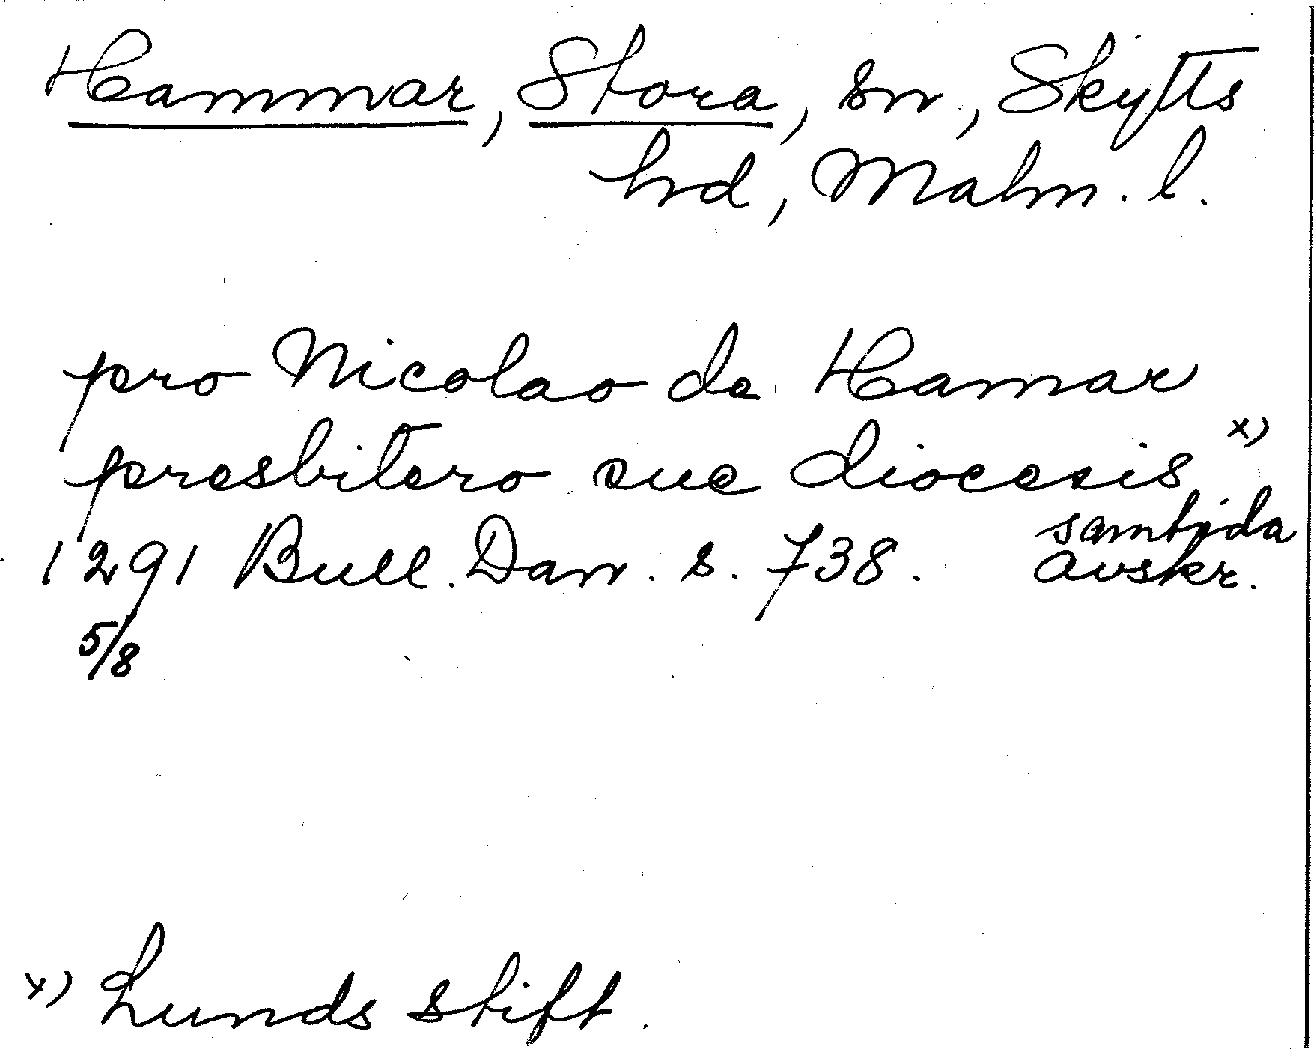 Hammar, Stora, sn, Skytts
hd, Malm. l.
pro Nicolao de Hamar
presbitero sue diocesis x)
1291 Bull. Dan. s. 738. samtida avskr.
5/8
x) Lunds stift.